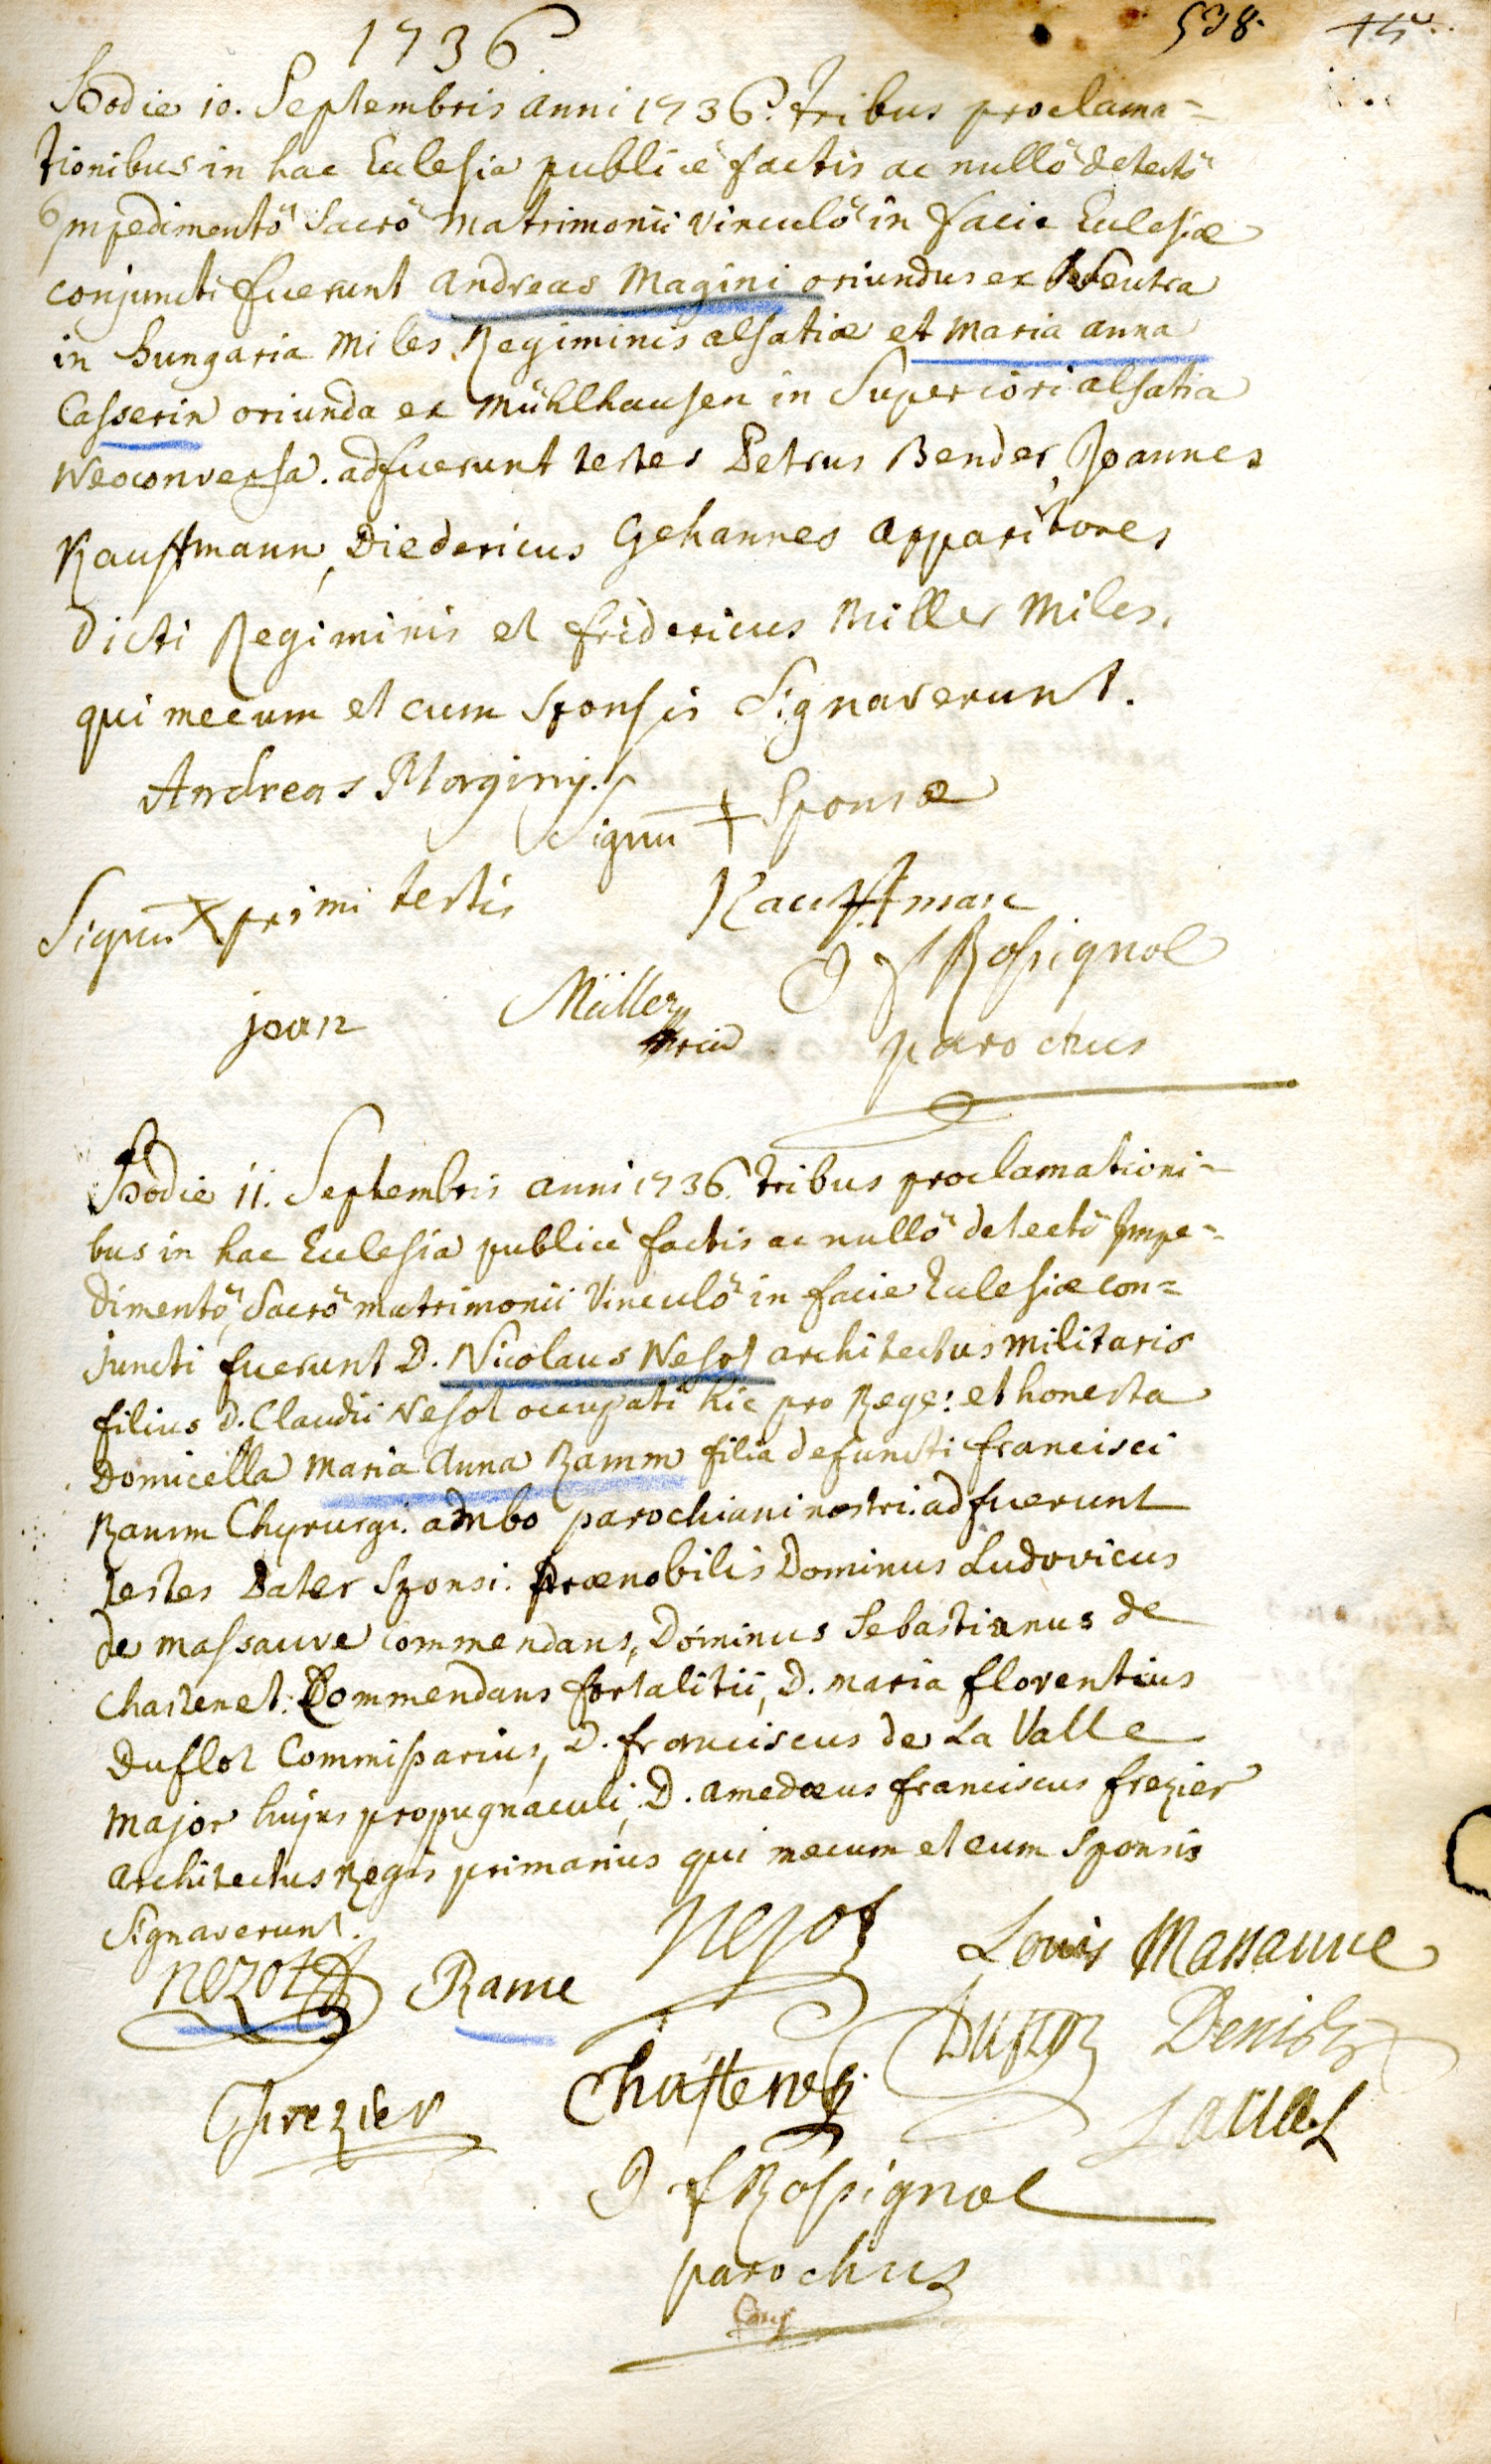 1736
538.
Hodie 10. Septembris anni 1736. tribus proclama=
tionibus in hac Ecclesia publicè factis ac nullô detectô
Impedimentô Sacrô Matrimonii vinculô in facie Ecclesiæ
conjuncti fuerunt andreas Magini oriundus ex Neutra
in hungaria Miles Regiminis alsatiæ et Maria anna
Casserin oriunda ex Mühlhausen in Superiori alsatia
Neoconversa. adfuerunt testes Petrus Bender, Joannes
Kauffmann, Diedericus Gehannes apparitores
dicti Regiminis et fridericus Miller Miles,
qui mecum et cum sponsis Signaverunt.
Andreas Maginij.
Signū + Sponsæ
Signū x primi testis
Kauffman
J f Rossignol
joan
Müller
parochus
Hodie 11. Septembris anni 1736. tribus proclamationi=
bus in hac Ecclesia publicè factis ac nullô detectô Impe=
dimentô, Sacrô matrimonii Vinculô in facie Ecclesiæ con=
juncti fuerunt D. Nicolaus Nesot architectus Militaris
filius d. Claudii Nesot occupati hic pro Rege: et honesta
Domicella Maria Anna Ramm filia defuncti francisci
Ramm Chyrurgi. ambo parochiani nostri. adfuerunt
testes Pater Sponsi. Prænobilis Dominus Ludovicus
de massauve commendans, Dominus Sebastianus de
Chastenet. Commendans fortalitii, D. Maria florentius
Duflot Commissarius, D. franciscus de La Valle
Major hujus propugnaculi, D. amedæus franciscus frezier
architectus Regis primarius qui mecum et cum Sponsis
Signaverunt.
nezot
Rame
Nezot
Louis Massauve
Duflot
Chastenet
Frezier
Laval
J f Rossignol
parochus